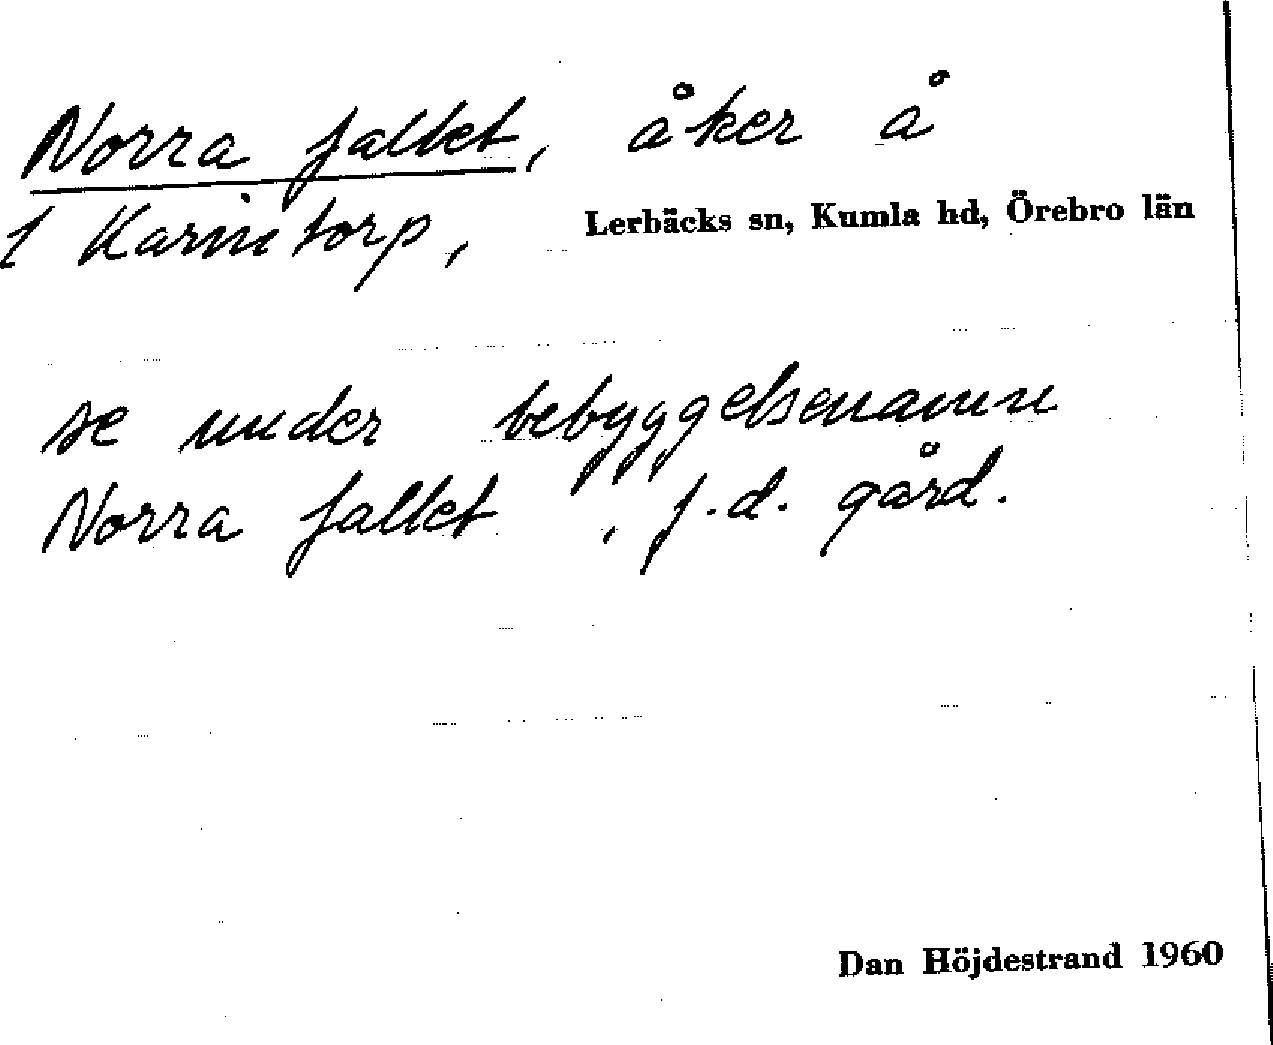 Norra fallet, åker å
1 Karintorp, Lerbäcks sn, Kumla hd, Örebro län
se under bebyggelsenamn
Norra fallet, f.d. gård.
Dan Höjdestrand 1960